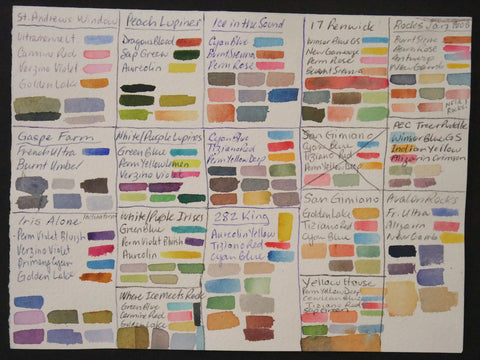 St. Andrews Window
Ultramarine Lt
Carmine Red
Verzino Violet
Golden Lake
Peach Lupines
Dragons Blood
Sap Green
Aureolin
Ice in the Sound
Cyan Blue
Burnt Sienna
Perm Rose
17 Fenwick
Winsor Blue GS
New Gamboge
Perm Rose
Burnt Sienna
Rocks
Burnt Siena
Perm Rose
Antwerp
New Gamb
Rocks
Gaspe Farm
French Ultra
Burnt Umber
White/Purple Lupines
Green Blue
Perm Yellow Lemon
Verzino Violet
Cyan Blue
Tiziano Red
Perm Yellow Deep
San Gimiano
Cyan Blue
Tiziano Red
Perm Yellow Deep
PEC Tree + Puddle
Winsor Blue GS
Indian Yellow
Alizarin Crimson
Iris Alone
Perm Violet Bluish
Verzino Violet
Primary Cyan
Golden Lake
White/Purple Irises
Green Blue
Perm Violet Bluish
Aureolin
282 King
Aureolin Yellow
Tiziano Red
Cyan Blue
San Gimiano
Golden Lake
Tiziano Red
Cyan Blue
Avalon Rocks
Fr. Ultra
Alizarin
New Gamb
Where Ice Meets Rock
Green Blue
Carmine Red
Golden Lake
Yellow House
Perm Yellow Deep
Cerulean Blue
Tiziano Red